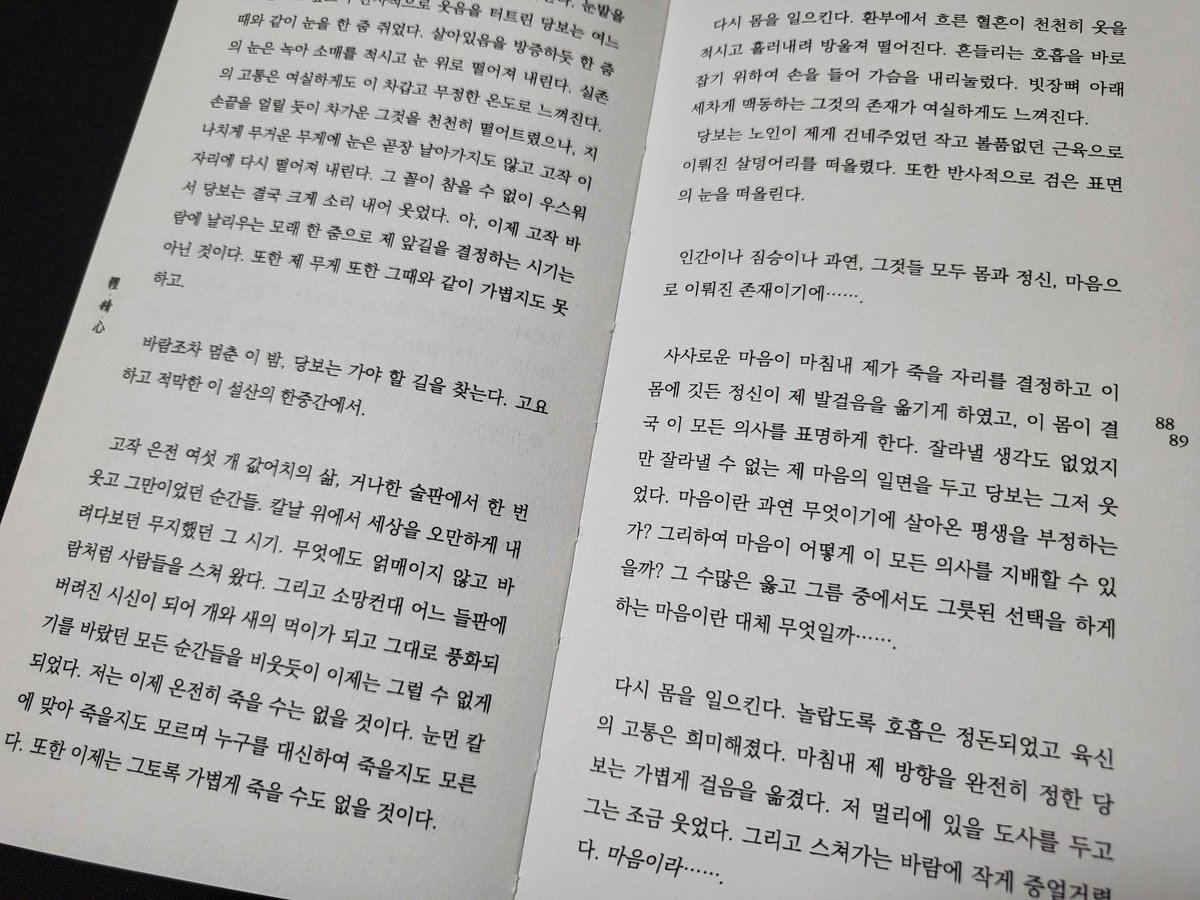 웃음을 터트린 당보는 여느
때와 같이 눈을 한 줌 쥐었다. 살아있음을 방증하듯 한 줌
의 눈은 녹아 소매를 적시고 눈 위로 떨어져 내린다. 실존
의 고통은 여실하게도 이 차갑고 무정한 온도로 느껴진다.
손끝을 얼릴 듯이 차가운 그것을 천천히 떨어트렸으나, 지
나치게 무거운 무게에 눈은 곧장 날아가지도 않고 고작 이
자리에 다시 떨어져 내린다. 그 꼴이 참을 수 없이 우스워
서 당보는 결국 크게 소리 내어 웃었다. 아, 이제 고작 바
람에 날리우는 모래 한 줌으로 제 앞길을 결정하는 시기는
아닌 것이다. 또한 제 무게 또한 그때와 같이 가볍지도 못
하고.
바람조차 멈춘 이 밤, 당보는 가야 할 길을 찾는다. 고요
하고 적막한 이 설산의 한중간에서.
고작 은전 여섯 개 값어치의 삶, 거나한 술판에서 한 번
웃고 그만이었던 순간들. 칼날 위에서 세상을 오만하게 내
려다보던 무지했던 그 시기. 무엇에도 얽매이지 않고 바
람처럼 사람들을 스쳐 왔다. 그리고 소망컨대 어느 들판에
버려진 시신이 되어 개와 새의 먹이가 되고 그대로 풍화되
기를 바랐던 모든 순간들을 비웃듯이 이제는 그럴 수 없게
되었다. 저는 이제 온전히 죽을 수는 없을 것이다. 눈먼 칼
에 맞아 죽을지도 모르며 누구를 대신하여 죽을지도 모른
다. 또한 이제는 그토록 가볍게 죽을 수도 없을 것이다.
精·心
다시 몸을 일으킨다. 환부에서 흐른 혈흔이 천천히 옷을
적시고 흘러내려 방울져 떨어진다. 흔들리는 호흡을 바로
잡기 위하여 손을 들어 가슴을 내리눌렀다. 빗장뼈 아래
세차게 맥동하는 그것의 존재가 여실하게도 느껴진다.
당보는 노인이 제게 건네주었던 작고 볼품없던 근육으로
이뤄진 살덩어리를 떠올렸다. 또한 반사적으로 검은 표면
의 눈을 떠올린다.
인간이나 짐승이나 과연, 그것들 모두 몸과 정신, 마음으
로 이뤄진 존재이기에…….
사사로운 마음이 마침내 제가 죽을 자리를 결정하고 이
몸에 깃든 정신이 제 발걸음을 옮기게 하였고, 이 몸이 결
국 이 모든 의사를 표명하게 한다. 잘라낼 생각도 없었지
만 잘라낼 수 없는 제 마음의 일면을 두고 당보는 그저 웃
었다. 마음이란 과연 무엇이기에 살아온 평생을 부정하는
가? 그리하여 마음이 어떻게 이 모든 의사를 지배할 수 있
을까? 그 수많은 옳고 그름 중에서도 그릇된 선택을 하게
하는 마음이란 대체 무엇일까…….
다시 몸을 일으킨다. 놀랍도록 호흡은 정돈되었고 육신
의 고통은 희미해졌다. 마침내 제 방향을 완전히 정한 당
보는 가볍게 걸음을 옮겼다. 저 멀리에 있을 도사를 두고
그는 조금 웃었다. 그리고 스쳐가는 바람에 작게 중얼거렸
다. 마음이라…….
88
89